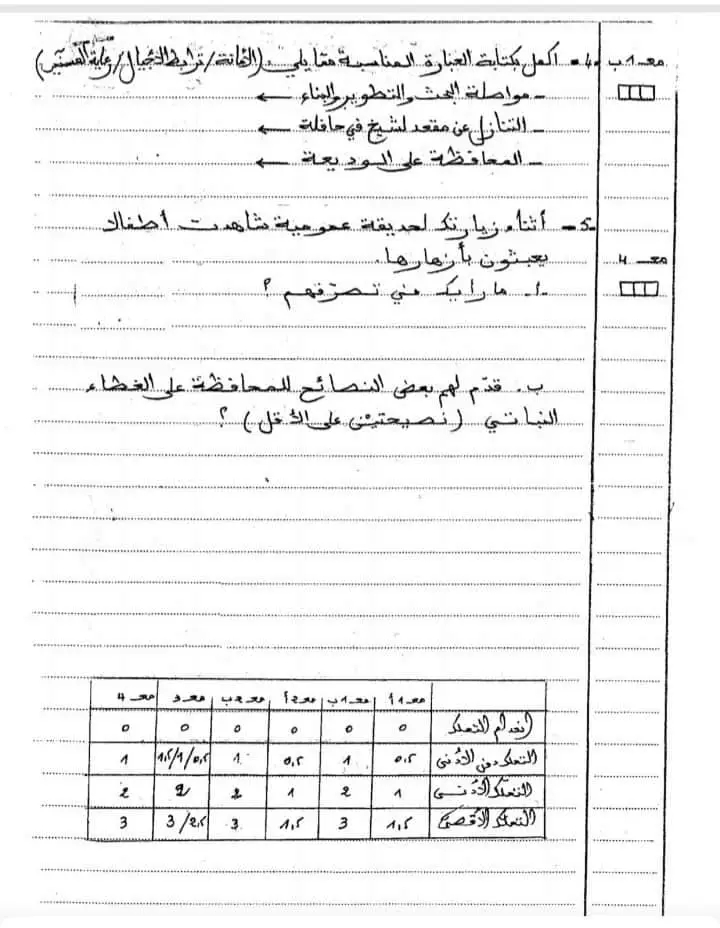 معـ 1 ب
4- أكمل بكتابة العبارة المناسبة ممّا يلي: (الأمانة / ترابط الأجيال / رعاية المسنّين)
- مواصلة البحث والتطوير والبناء ←
- التنازل عن مقعد لشيخ في حافلة ←
- المحافظة على الوديعة ←
5- أثناء زيارتك لحديقة عمومية شاهدت أطفالا
معـ 4
يعبثون بأزهارها.
أ. ما رأيك في تصرّفهم ؟
ب. قدّم لهم بعض النصائح للمحافظة على الغطاء
النباتي (نصيحتين على الأقل) ؟
معـ 1 أ | معـ 1 ب | معـ 2 أ | معـ 2 ب | معـ 3 | معـ 4
انعدام التملك | 0 | 0 | 0 | 0 | 0 | 0
التملك دون الأدنى | 0,5 | 1 | 0,5 | 1 | 0,5/1/1,5 | 1
التملّك الأدنى | 1 | 2 | 1 | 2 | 2 | 2
التملك الأقصى | 1,5 | 3 | 1,5 | 3 | 2,5/3 | 3